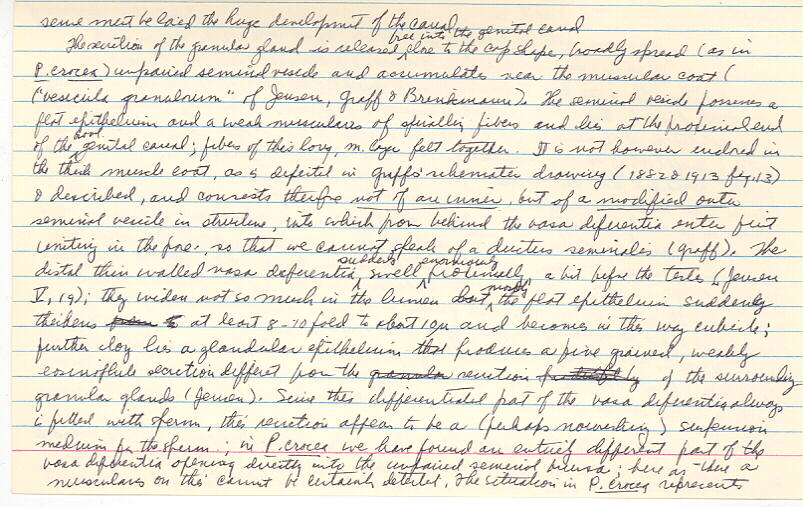 sense must be laid the huge development of the canal
free into the genital canal
The secretion of the granular gland is released, close to the cap shape, broadly spread (as in
P. crocea) unpaired seminal vesicle and accumulates near the muscular coat (
("vesicula granulorum" of Jensen, Graff & Brenkmann). The seminal vesicle possesses a
flat epithelium and a weak muscularis of spirally fibers and lies at the proximal end
of the genital canal; fibers of this long. m. layer felt together. It is not however enclosed in
the thick muscle coat, as is depicted in Graff's schematic drawing (1882 & 1913 fig. 13)
& described, and consists therefore not of an inner, but of a modified outer
seminal vesicle in structure, into which from behind the vasa diferentia enter first
uniting in the pore, so that we cannot speak of a ductus seminales (Graff). The
suddenly enormously
distal thin walled vasa deferentia, swell proximally, a bit before the testes (Jensen
V, 19); they widen not so much in the lumen but mostly the flat epithelium suddenly
thickens at least 8-10 fold to about 10µ and becomes in this way cubicle;
further along lies a glandular epithelium that produces a fine grained, weakly
eosinophile secretion different from the secretion of the surrounding
granular glands (Jensen). Since this differentiated part of the vasa diferentia always
is filled with sperm, this secretion appears to be a (perhaps nourishing) suspension
medium for the sperm.; in P. crocea we have found an entirely different part of the
vasa diferentia opening directly into the unpaired seminal bursa; here as there a
muscularis on this cannot be certainly detected. The situation in P. crocea represents